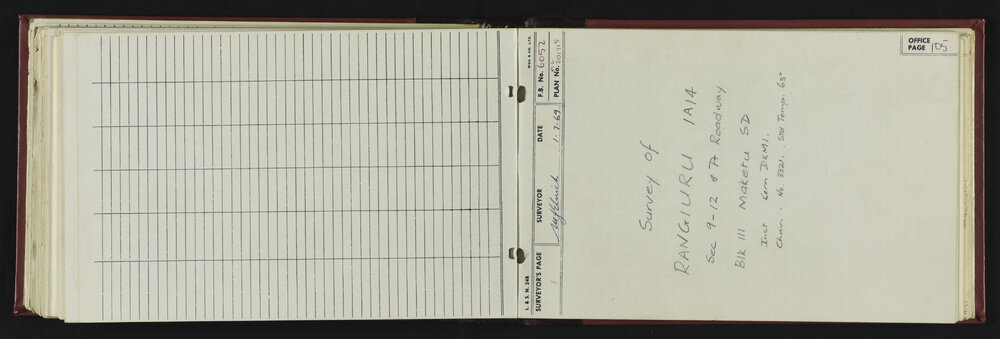 OFFICE PAGE 181
Survey of
RANGIURU 1A14
Sec 9-12 & Pt Roadway
Blk III Maketu SD
Inst Kern DKM1.
Chain. No 3321. Std Temp. 63°
L. & S. N. 24B
SURVEYOR'S PAGE 1
SURVEYOR
DATE 1-7-69
F.B. No. 6052
PLAN No.